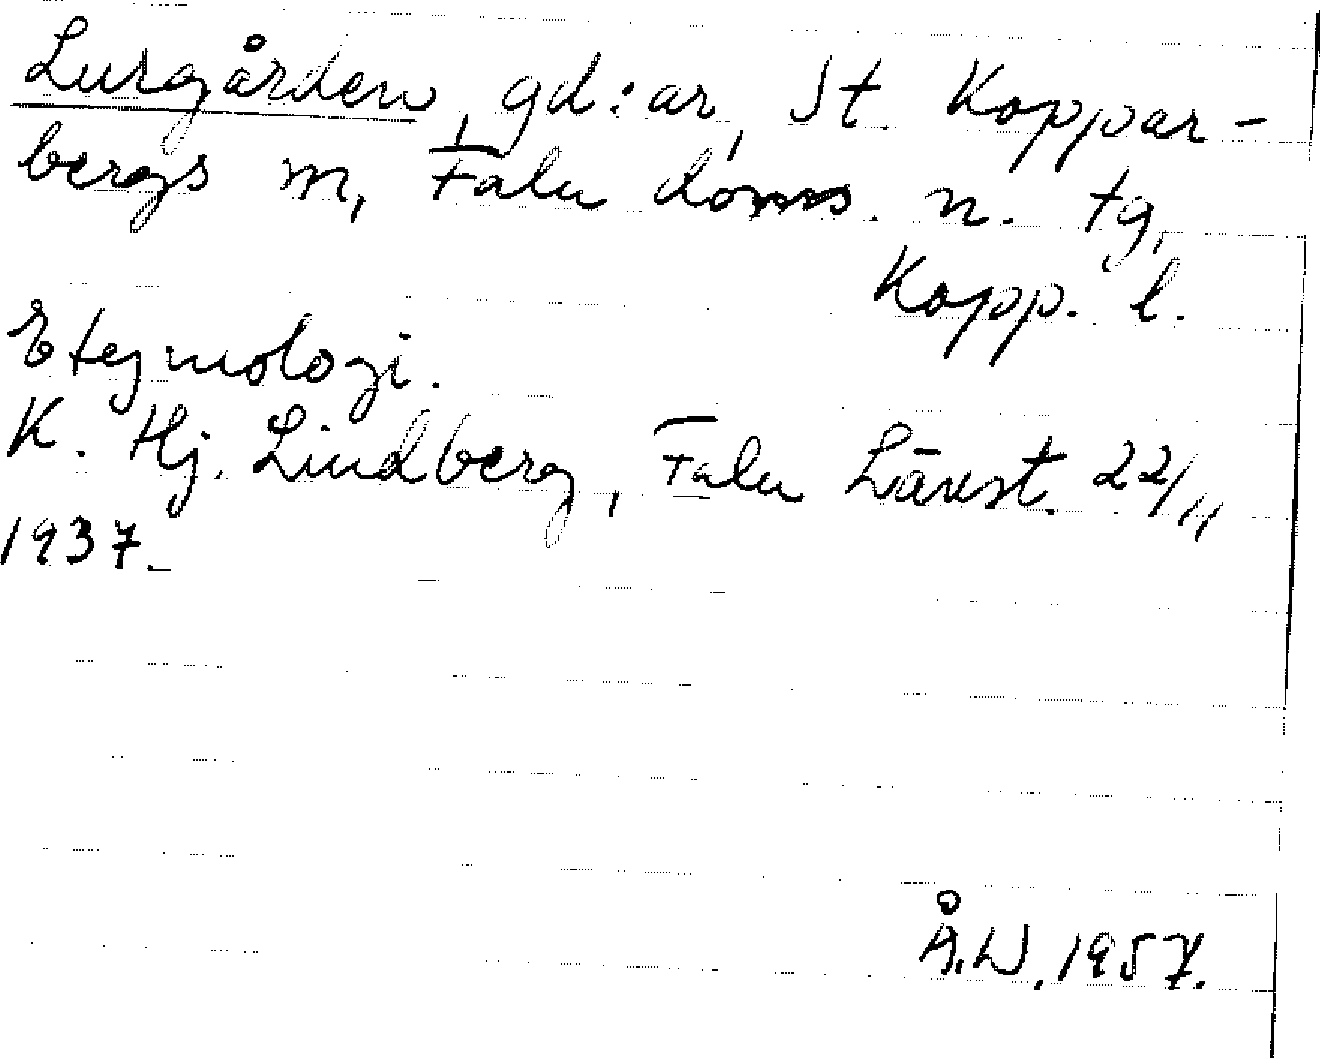 Lurgården, gd:ar, St Koppar-
bergs m, Falu doms. n. tg,
Kopp. l.
Etymologi.
K. Hj. Lindberg, Falu Länst. 22/11
1937.
Å.W. 1957.